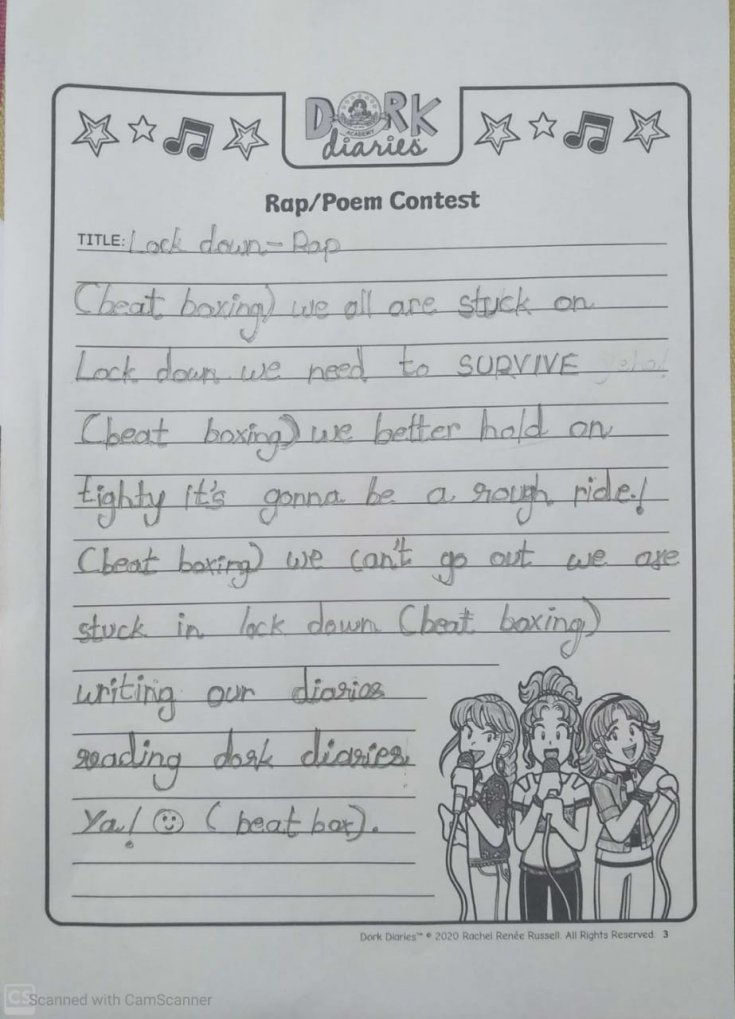 DORK
ACADEMY
diaries
Rap/Poem Contest
TITLE: Lock down - Rap
(beat boxing) we all are stuck on
Lock down we need to SURVIVE
(beat boxing) we better hold on
tighty it's gonna be a rough ride!
(beat boxing) we can't go out we are
stuck in lock down (beat boxing)
writing our diaries
reading dork diaries
Ya! (beat box).
Dork Diaries™ © 2020 Rachel Renée Russell. All Rights Reserved. 3
CS Scanned with CamScanner